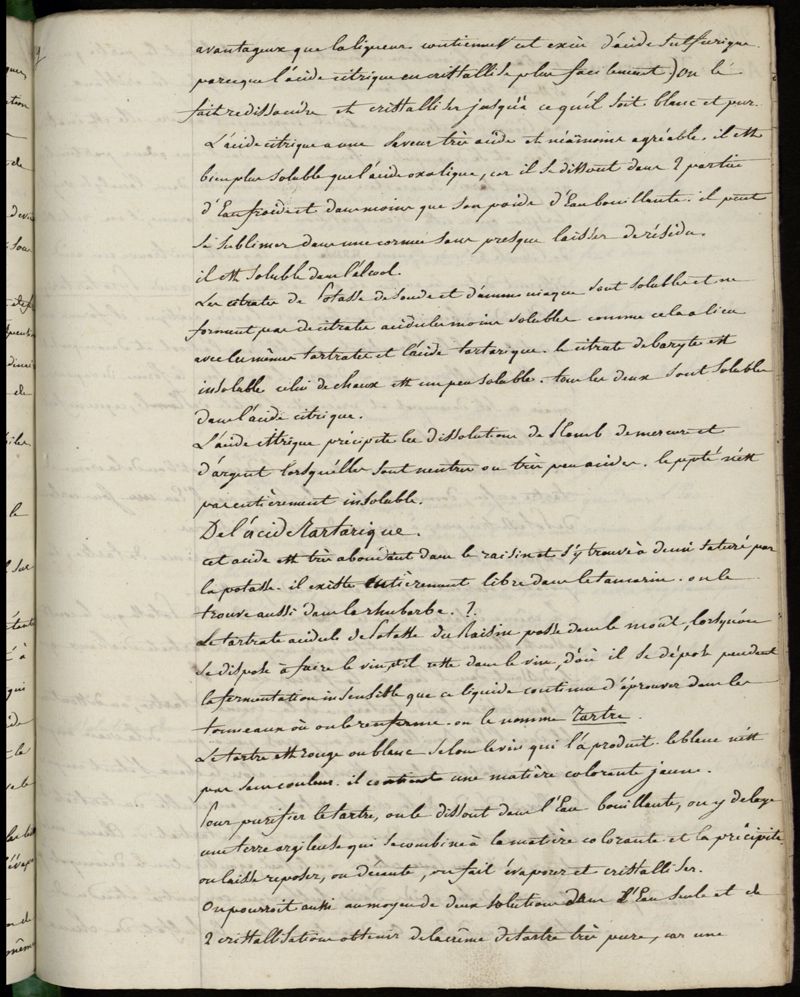 avantageux que la liqueur contienne cet excès d'acide sulfurique
parceque l'acide citrique en cristallise plus facilement.) on le
fait redissoudre et cristalliser jusqu'à ce qu'il soit blanc et pur.
L'acide citrique a une saveur très acide et néanmoins agréable. il est
bien plus soluble que l'acide oxalique, car il se dissout dans 2 parties
d'Eau froide et dans moins que son poids d'Eau bouillante. il peut
se sublimer dans une cornue sans presque laisser de résidu.
il est soluble dans l'alcool.
Les citrates de Potasse de soude et d'ammoniaque sont solubles et ne
forment pas de citrates acidules moins solubles comme cela a lieu
avec les mêmes tartrates et l'acide tartarique. le citrate de baryte est
insoluble celui de chaux est un peu soluble. tous les deux sont solubles
dans l'acide citrique.
L'acide citrique précipite les dissolutions de Plomb de mercure et
d'argent lorsqu'elles sont neutres ou très peu acides. le ppté n'est
pas entièrement insoluble.
De l'acid Tartarique.
cet acide est très abondant dans le raisin et s'y trouve à demi saturé par
la potasse. il existe entièrement libre dans le tamarin. on le
trouve aussi dans la rhubarbe. ?.
Le tartrate acidule de Potasse du Raisin passe dans le mout, lorsqu'on
se dispose à faire le vin, et il reste dans le vin, d'où il se dépose pendant
la fermentation insensible que ce liquide continue d'éprouver dans les
tonneaux où on le renferme. on le nomme Tartre.
Le tartre est rouge ou blanc selon le vin qui l'a produit. le blanc n'est
pas sans couleur. il contient une matière colorante jaune.
Pour purifier le tartre, on le dissout dans l'Eau bouillante, on y délaye
une terre argileuse qui se combine à la matière colorante et la précipite
on laisse reposer, on décante, on fait évaporer et cristalliser.
On pourroit aussi au moyen de deux solutions dans l'Eau seule et de
2 cristallisations obtenir de la crême de tartre très pure, car une